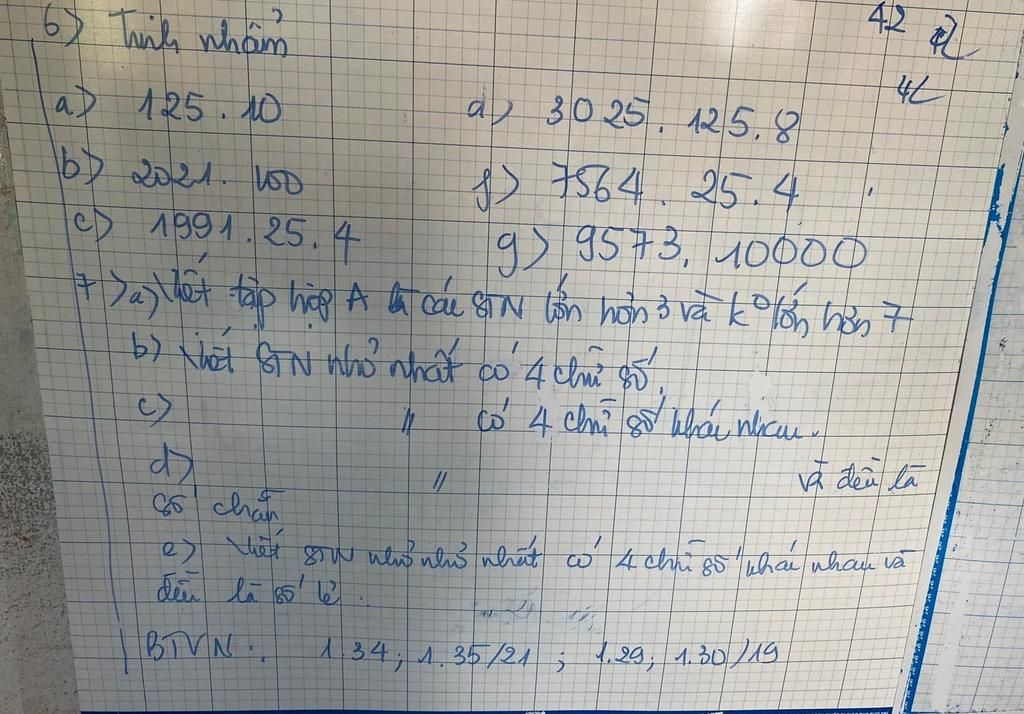 6) Tính nhẩm 42
a) 125.10 d) 3025.125.8
b) 2021.100 f) 7564.25.4
c) 1991.25.4 g) 9573.10000
7) a) Viết tập hợp A là các STN lớn hơn 3 và k° lớn hơn 7
b) Viết STN nhỏ nhất có 4 chữ số.
c) " có 4 chữ số khác nhau.
d) " và đều là
số chẵn
e) Viết STN nhỏ nhỏ nhất có 4 chữ số khác nhau và
đều là số lẻ.
BTVN: 1.34; 1.35/21; 1.29; 1.30/19